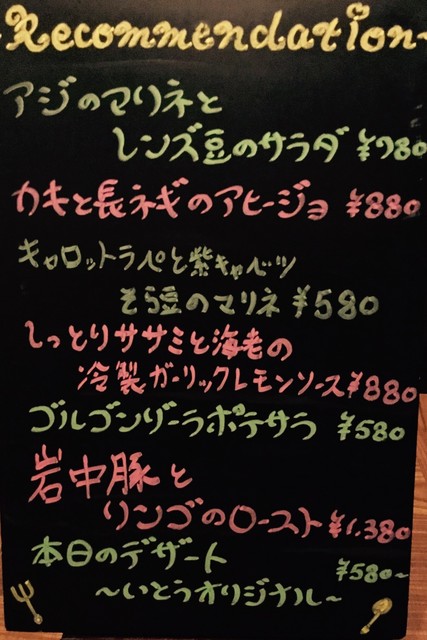 ~Recommendation~
アジのマリネと
レンズ豆のサラダ ¥780
カキと長ネギのアヒージョ ¥880
キャロットラペと紫キャベツ
そら豆のマリネ ¥580
しっとりササミと海老の
冷製ガーリックレモンソース ¥880
ゴルゴンゾーラポテサラ ¥580
岩中豚と
リンゴのロースト ¥1.380
本日のデザート ¥580~
~いとうオリジナル~